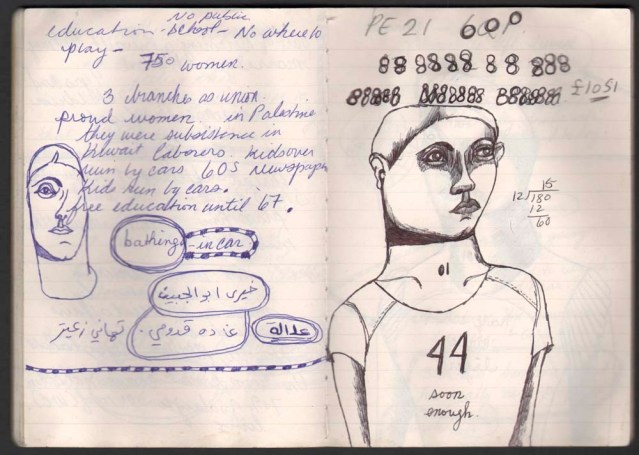 No public
education - school - No where to
play -
750 women.
3 branches as union.
proud women. in Palestine
they were subsistence in
Kuwait laborers. kids over
run by cars 60s newspaper
kids run by cars.
free education until 67.
bathing - in car
خيري ابو الجبين
تهاني زعيتر غاده قدومي. عدالة
PE 21 601
£1051
15
12/180
12
60
01
44
soon
enough.